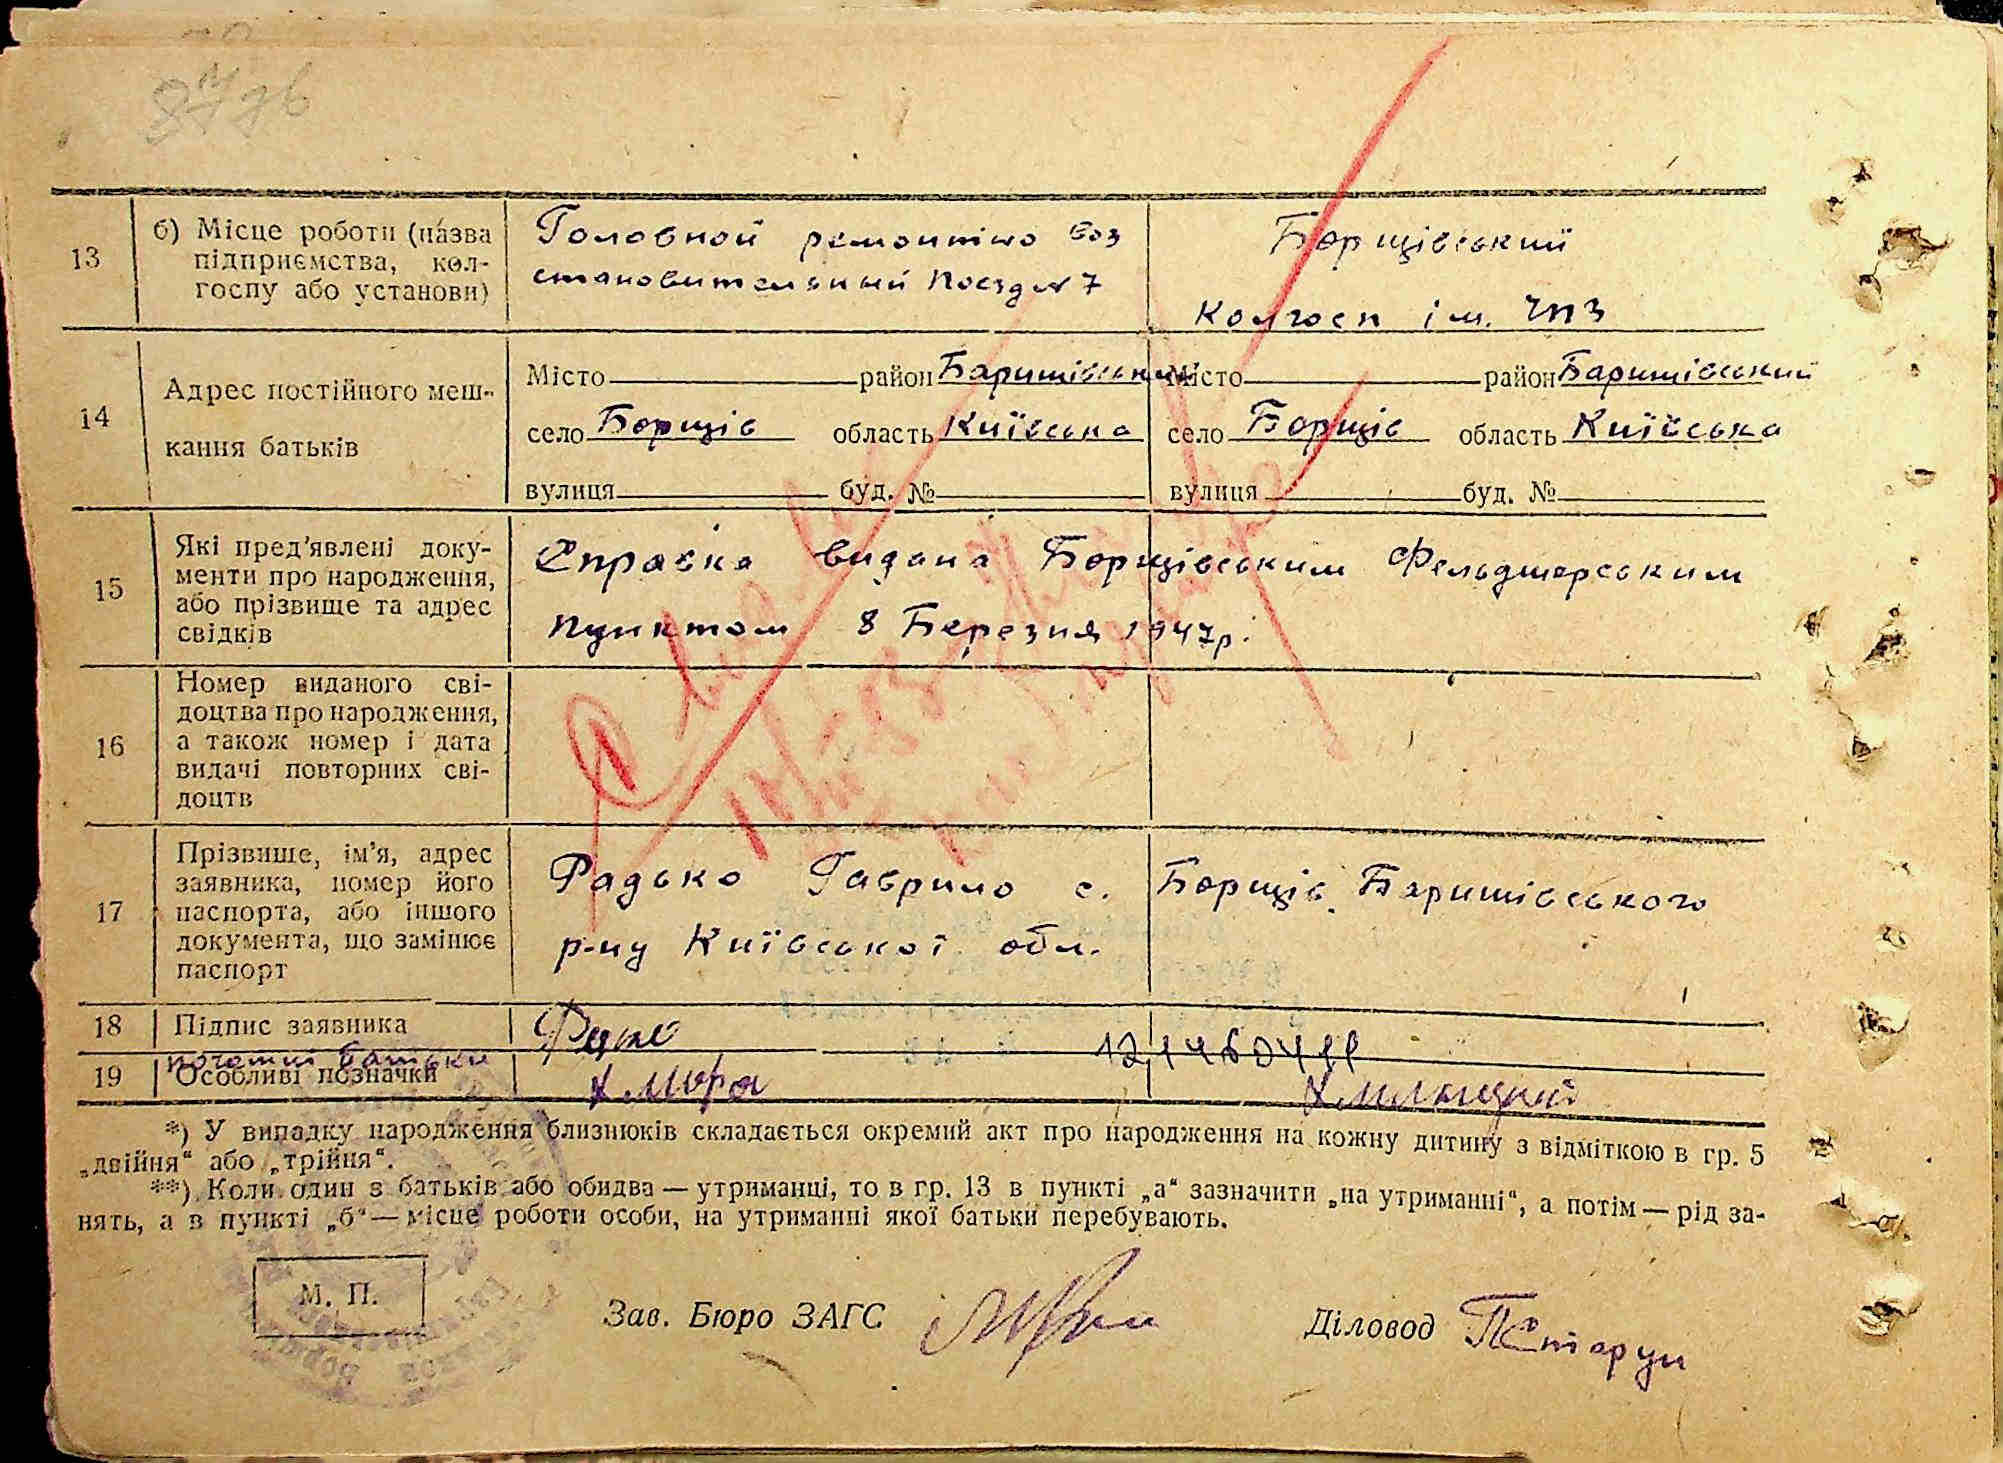 13
б) Місце роботи (назва
підприємства, кол-
госпу або установи)
Головной ремонтно воз
становительный Поезд № 7
Борщівський
Колгосп ім. ЧПЗ
14
Адрес постійного меш-
кання батьків
Місто район Баришівський
село Борщів область Київська
вулиця буд. №
Місто район Баришівський
село Борщів область Київська
вулиця буд. №
15
Які пред'явлені доку-
менти про народження,
або прізвище та адрес
свідків
Справка видана Борщівським Фельдшерським
пунктом 8 Березня 1947р.
16
Номер виданого сві-
доцтва про народження,
а також номер і дата
видачі повторних сві-
доцтв
17
Прізвище, ім'я, адрес
заявника, номер його
паспорта, або іншого
документа, що замінює
паспорт
Радько Гаврило с. Борщів Баришівського
р-ну Київської обл.
18
Підпис заявника
19
Особливі позначки
батьки
*) У випадку народження близнюків складається окремий акт про народження на кожну дитину з відміткою в гр. 5
„двійня“ або „трійня“.
**) Коли один з батьків або обидва — утриманці, то в гр. 13 в пункті „а“ зазначити „на утриманні“, а потім — рід за-
нять, а в пункті „б“ — місце роботи особи, на утриманні якої батьки перебувають.
М. П.
Зав. Бюро ЗАГС
Діловод